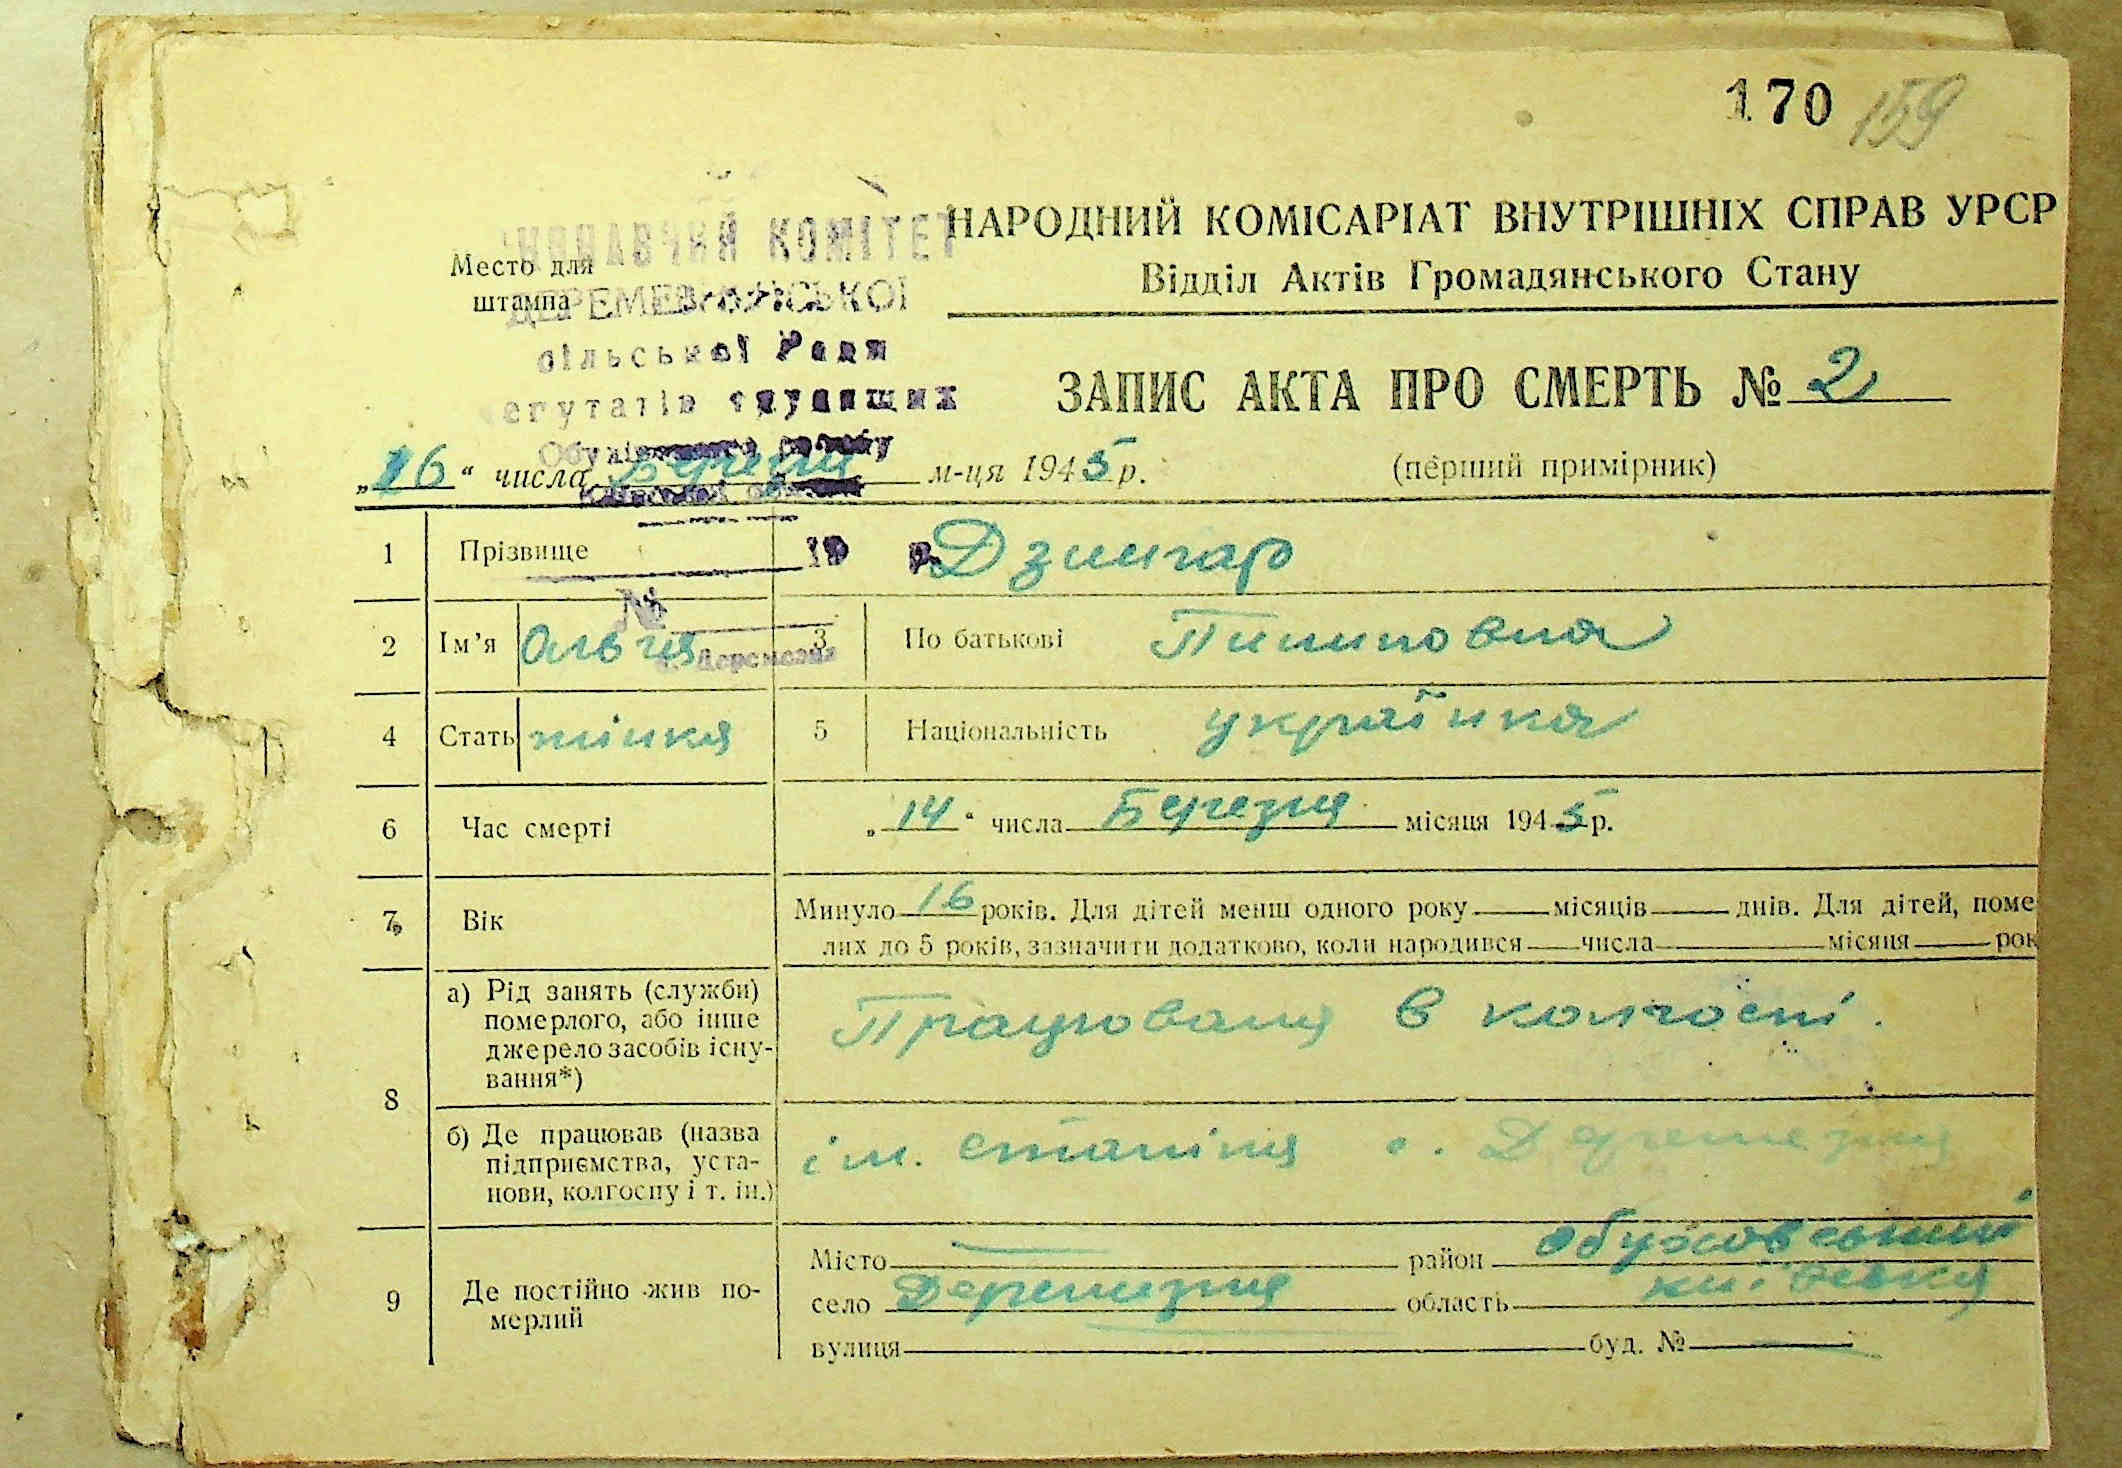 170 159
НАРОДНИЙ КОМІСАРІАТ ВНУТРІШНІХ СПРАВ УРСР
Відділ Актів Громадянського Стану
Место для
штампа
КОМІТЕТ
сільської Ради
депутатів трудящих
ЗАПИС АКТА ПРО СМЕРТЬ № 2
„16“ числа Березня м-ця 1945 р.
(перший примірник)
19 р.
№
1 Прізвище Дзингар
2 Ім'я Ольга 3 По батькові Пилиповна
4 Стать жінка 5 Національність українка
6 Час смерті „14“ числа Березня місяця 1945 р.
7 Вік Минуло 16 років. Для дітей менш одного року місяців днів. Для дітей, поме
лих до 5 років, зазначити додатково, коли народився числа місяця рок
8 а) Рід занять (служби)
померлого, або інше
джерело засобів існу-
вання*)
Працювала в колгоспі.
б) Де працював (назва
підприємства, уста-
нови, колгоспу і т. ін.)
ім. Сталіна с. Деремезна
9 Де постійно жив по-
мерлий
Місто район Обуховський
село Деремезна область Київська
вулиця буд. №